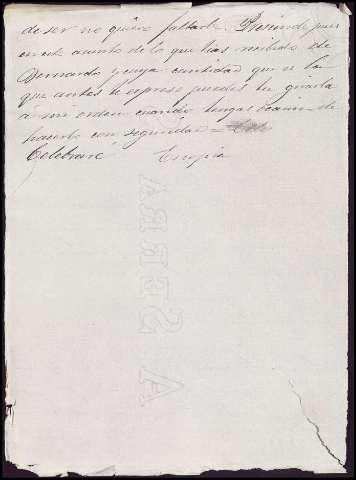 de ser no quiere faltarte. Prescinde pues
en este asunto de lo que has recibido de
Bernardo y cuya cantidad que es la
que antes te espreso puedes tu girarla
a mi orden cuando tengas ocasion de
hacerlo con seguridad =
Celebraré
A SERRA